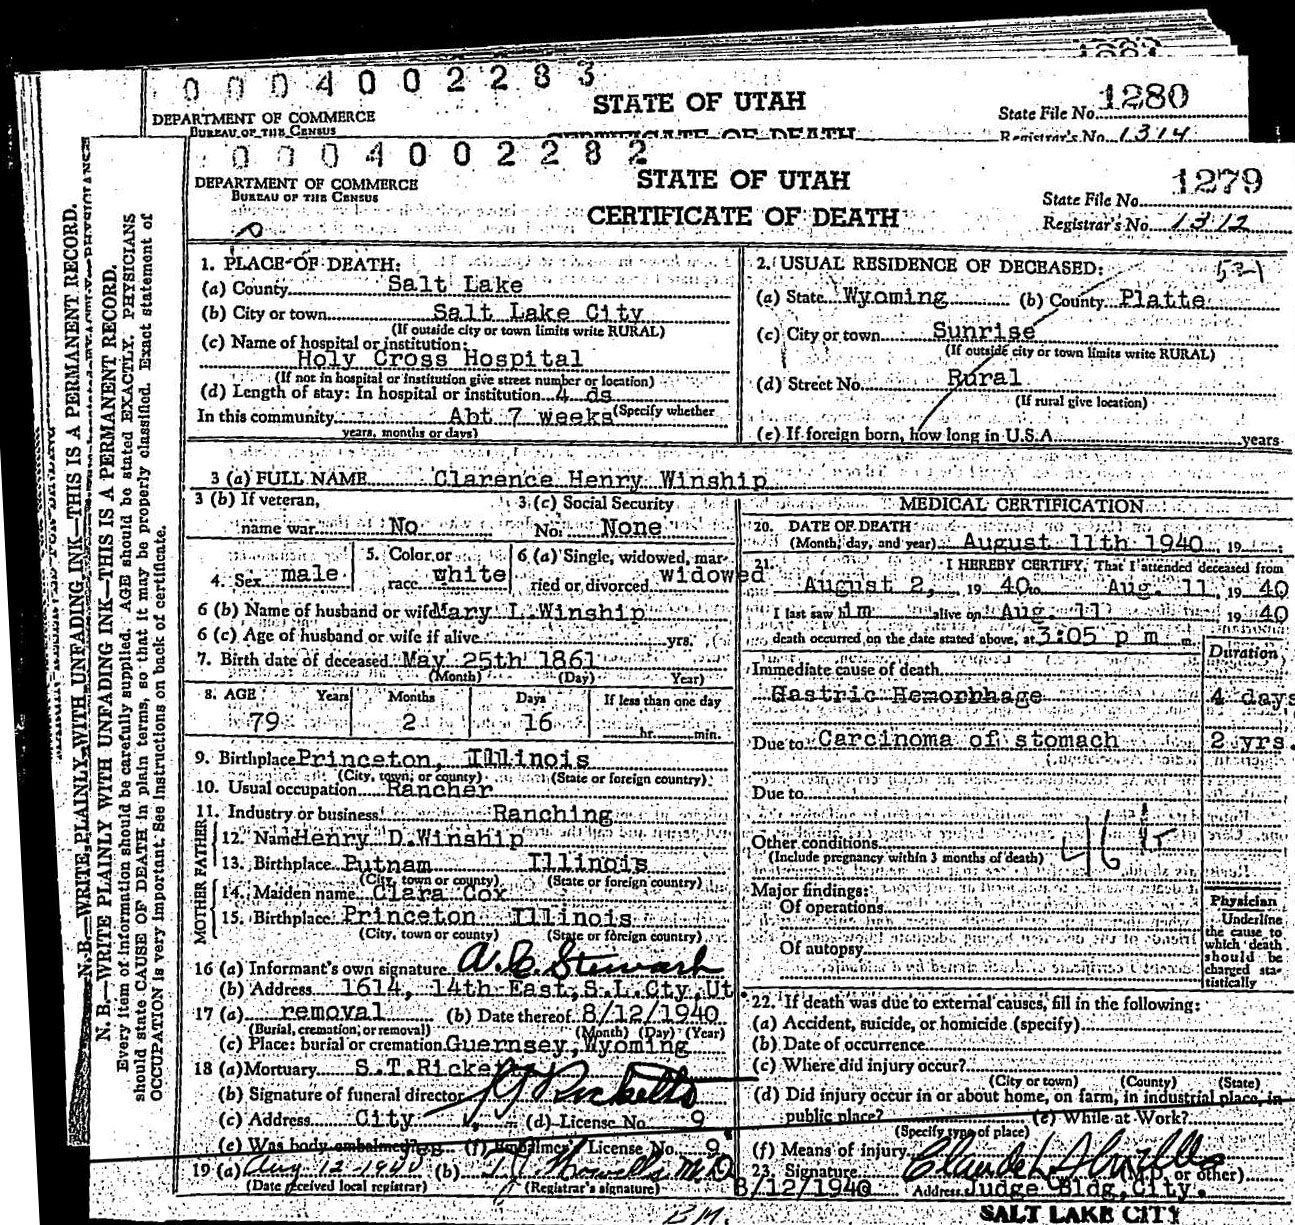 1281
0004002283
STATE OF UTAH
State File No. 1280
DEPARTMENT OF COMMERCE
BUREAU OF THE CENSUS
CERTIFICATE OF DEATH
Registrar's No. 1314
0004002282
STATE OF UTAH
1279
DEPARTMENT OF COMMERCE
BUREAU OF THE CENSUS
State File No.
CERTIFICATE OF DEATH
Registrar's No. 1312
N. B.—WRITE PLAINLY WITH UNFADING INK—THIS IS A PERMANENT RECORD.
N. B.—WRITE PLAINLY WITH UNFADING INK—THIS IS A PERMANENT RECORD.
Every item of information should be carefully supplied. AGE should be stated EXACTLY. PHYSICIANS
should state CAUSE OF DEATH in plain terms, so that it may be properly classified. Exact statement of
OCCUPATION is very important. See instructions on back of certificate.
1. PLACE OF DEATH:
(a) County Salt Lake
(b) City or town Salt Lake City
(If outside city or town limits write RURAL)
(c) Name of hospital or institution:
Holy Cross Hospital
(If not in hospital or institution give street number or location)
(d) Length of stay: In hospital or institution 4 ds
In this community Abt 7 weeks (Specify whether
years, months or days)
2. USUAL RESIDENCE OF DECEASED:
(a) State Wyoming (b) County Platte
(c) City or town Sunrise
(If outside city or town limits write RURAL)
(d) Street No. Rural
(If rural give location)
(e) If foreign born, how long in U.S.A. years
3 (a) FULL NAME Clarence Henry Winship
3 (b) If veteran,
name war No
3 (c) Social Security
No. None
4. Sex male
5. Color or
race white
6 (a) Single, widowed, mar-
ried or divorced widowed
6 (b) Name of husband or wife Mary L. Winship
6 (c) Age of husband or wife if alive yrs.
7. Birth date of deceased May 25th 1861
(Month) (Day) Year)
8. AGE Years Months Days If less than one day
79 2 16 hr. min.
9. Birthplace Princeton, Illinois
(City, town, or county) (State or foreign country)
10. Usual occupation Rancher
11. Industry or business Ranching
FATHER
12. Name Henry D. Winship
13. Birthplace Putnam Illinois
(City, town or county) (State or foreign country)
MOTHER
14. Maiden name Clara Cox
15. Birthplace Princeton Illinois
(City, town or county) (State or foreign country)
16 (a) Informant's own signature A. E. Stewart
(b) Address 1614, 14th East, S.L.Cty, Ut
17 (a) removal (b) Date thereof 8/12/1940
(Burial, cremation, or removal) (Month) (Day) (Year)
(c) Place: burial or cremation Guernsey, Wyoming
18 (a) Mortuary S.T.Ricke
(b) Signature of funeral director Ricketts
(c) Address City (d) License No. 9
(e) Was body embalmed? (f) Embalmer License No. 9
19 (a) Aug 12-1940 (b) M.D.
(Date received local registrar) (Registrar's signature)
MEDICAL CERTIFICATION
20. DATE OF DEATH
(Month, day, and year) August 11th 1940, 19
21. I HEREBY CERTIFY, That I attended deceased from
August 2, 19 40 to Aug. 11, 19 40
I last saw im alive on Aug. 11 19 40
death occurred on the date stated above, at 3:05 p m m.
Duration
Immediate cause of death
Gastric Hemorrhage 4 days
Due to Carcinoma of stomach 2 yrs.
Due to
Other conditions
(Include pregnancy within 3 months of death)
Major findings:
Of operations
Of autopsy
Physician
Underline
the cause to
which death
should be
charged sta-
tistically
22. If death was due to external causes, fill in the following:
(a) Accident, suicide, or homicide (specify)
(b) Date of occurrence
(c) Where did injury occur?
(City or town) (County) (State)
(d) Did injury occur in or about home, on farm, in industrial place, in
public place? (e) While at Work?
(Specify type of place)
(f) Means of injury
23. Signature (M.D. or other)
8/12/1940 Address Judge Bldg, City.
SALT LAKE CITY